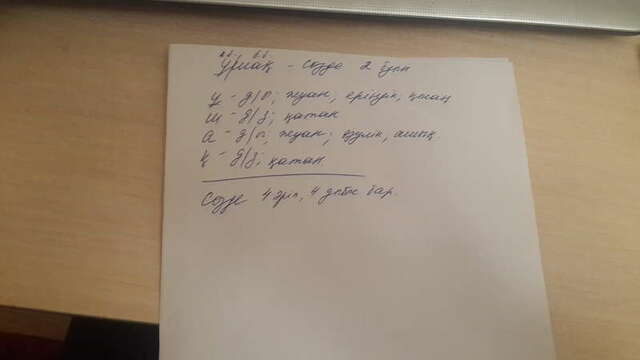 ұшақ - сөзде 2 буын
ұ - д/ты; жуан, еріндік, қысаң
ш - д/з; қатаң
а - д/ты; жуан; езулік, ашық.
қ - д/з; қатаң
Сөзде 4 әріп, 4 дыбыс бар.